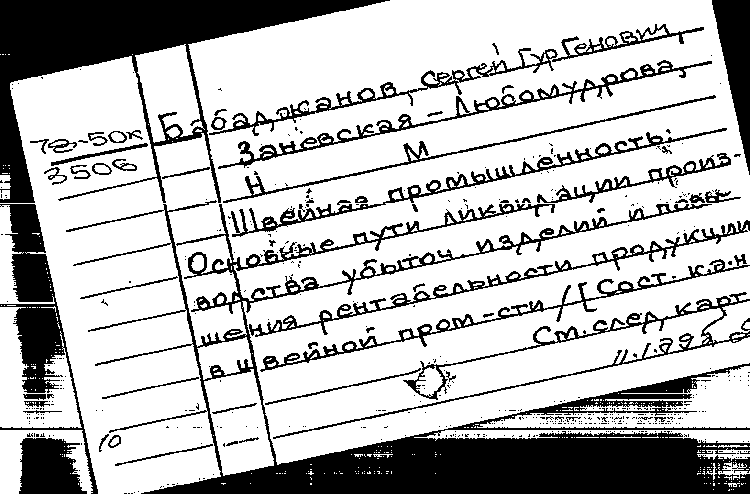 Бабаджанов, Сергей ГурГенович,
72-50к
3506
Заневская - Любомудрова,
Н М
Швейная промышленность:
Основные пути ликвидации произ-
водства убыточ изделий и повы-
шения рентабельности продукции
в швейной пром-сти / [Сост. к.э.н
См. след. карт
10